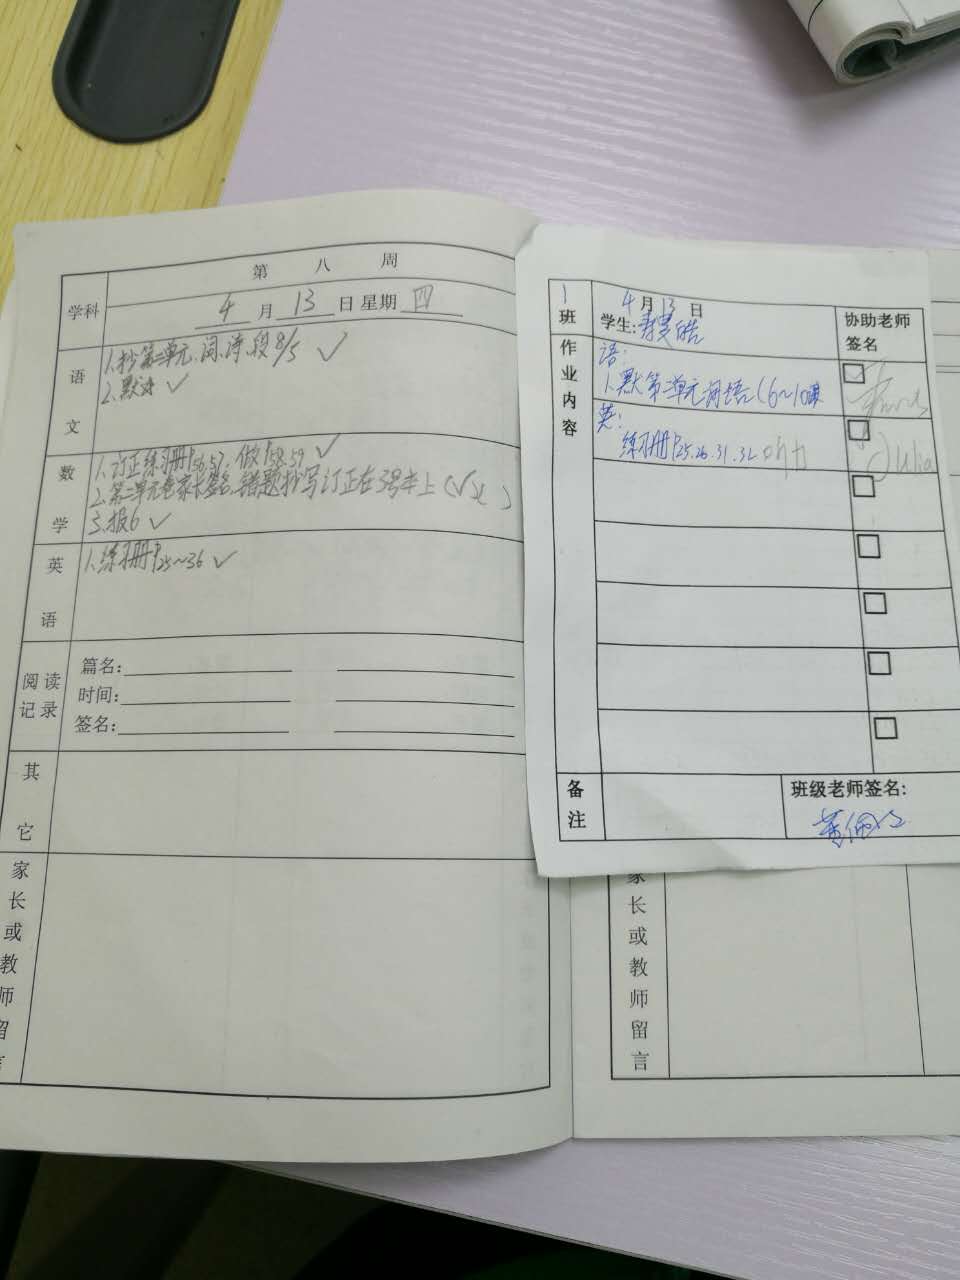 第 八 周
学科
4 月 13 日 星期 四
语文
1.抄第二单元、词、诗、段 8/5 ✓
2.默诗 ✓
数学
1.订正练习册P56.57. 做P58.59 ✓
2.第二单元卷家长签名、错题抄写订正在3号本上
3.报6 ✓
英语
1.练习册P25~36 ✓
阅读记录
篇名:
时间:
签名:
其它
家长或教师留言
1班
4月13日
学生:
协助老师签名
作业内容
语:
1.默第二单元词语(6~10课
英:
练习册P25.26.31.32
Julia
备注
班级老师签名:
家长或教师留言